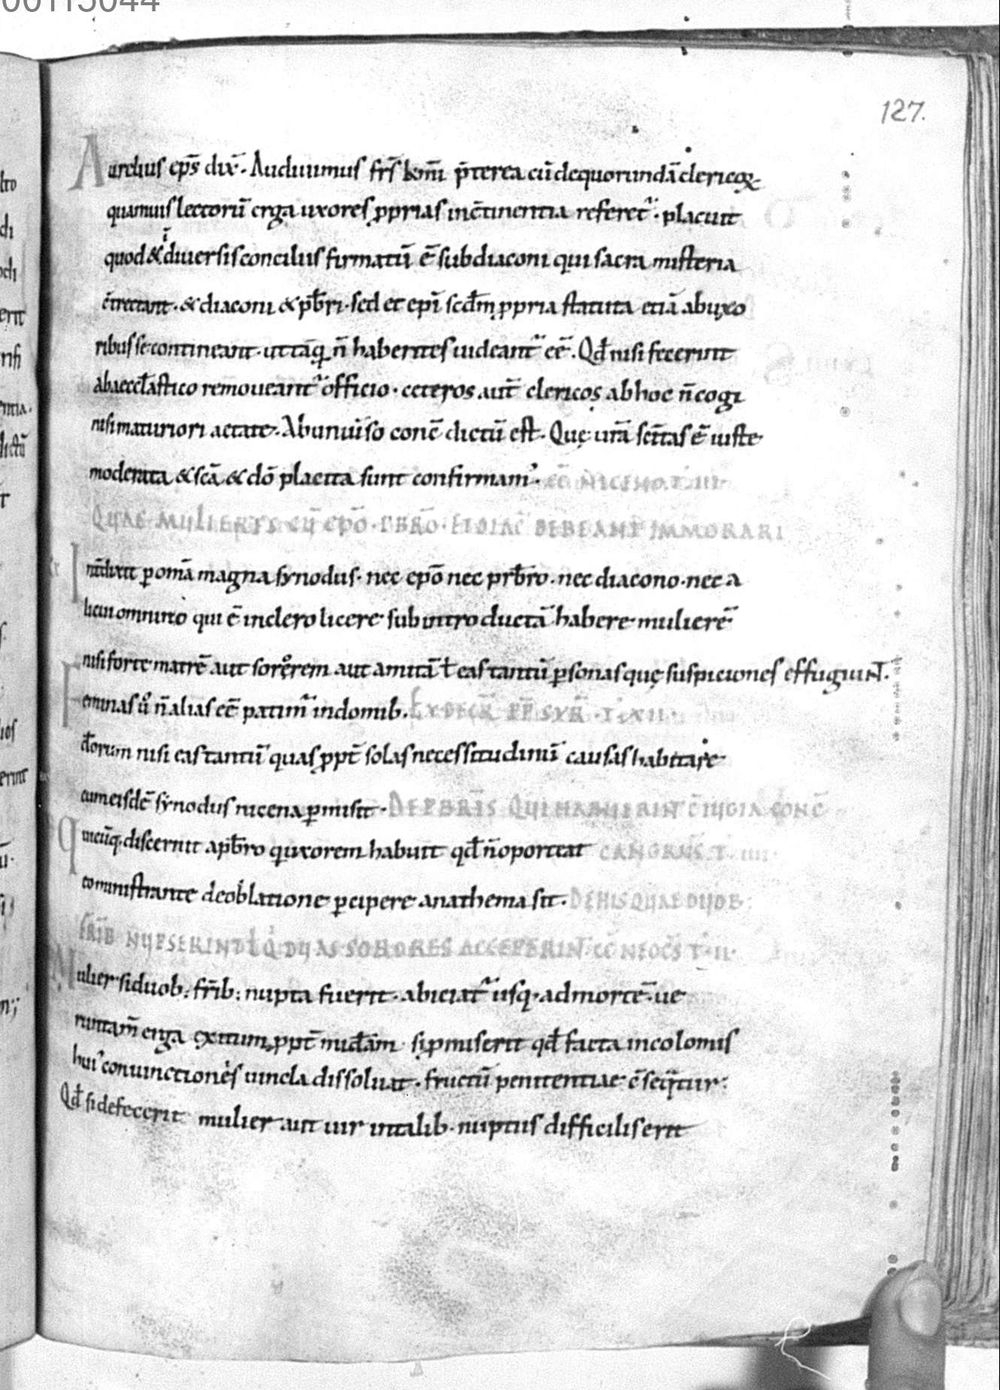 00115044
127.
Aurelius ep̄s dix̄. Audiuimus fr̄s km̄i p̄terea cū de quorundā clericoꝝ
quamuis lectorū erga uxores ꝓprias incōtinentia referet̄. placuit
quod & diuersis conciliis firmatū ē subdiaconi qui sacra misteria
cōtrectant. & diaconi & p̄br̄i. sed et ep̄i scd̄m ꝓpria statuta etiā ab uxo
ribus se contineant. ut tāq̄ n̄ habentes uideant̄ eē. Qd̄ nisi fecerint
ab aeccl̄astico remoueant̄ officio. ceteros aut̄ clericos ab hoc n̄ cogi
nisi maturiori aetate. Ab uniuiso conc̄ dictū est. Quę ur̄a sc̄itas ē iuste
moderata & sc̄a & dō placita sunt confirmam̄.
cc̄ NICENO. T. III.
QUAE MULIERES CŪ EP̄O. P̄BR̄O. ET DIAC̄ DEBEANT IMMORARI
Int̄dixit ꝑ om̄a magna synodus. nec ep̄o nec prb̄ro. nec diacono. nec a
licui omnino qui ē in clero licere subintroductā habere mulierē
nisi forte matrē aut sororem aut amitā ł eas tantū ꝑsonas quę suspiciones effugiuNT.
Feminas ū n̄ alias eē patim̄ in domib.
d̄orum nisi eas tantū quas ꝓpt̄ solas necessitudinū causas habitare
cum eisdē synodus nicena ꝑmisit. DE P̄BR̄IS QUI HABUERINT CŌIUGIA CONC̄
Quicūq. discernit a p̄br̄o q̄ uxorem habuit qd̄ n̄ oporteat CANGRNS. T. IIII.
eo ministrante de oblatione ꝑcipere anathema sit. DE HIS QUAE DUOB:
FR̄IB NUPSERINT ł Q̄ DUAS SORORES ACCEPERIN. CC̄ NEOCS̄ T. II.
Mulier si duob: fr̄ib: nupta fuerit. abiciat̄ usq. ad mortē. ue
runtam̄ erga exitum ꝓpt̄ mīd̄iam. si ꝓmiserit qd̄ facta incolomis
hui' coniunctiones uincla dissoluat. fructū penitentiae cōseq̄tur:
Qd̄ si defecerit mulier aut uir in talib. nuptiis difficilis erit